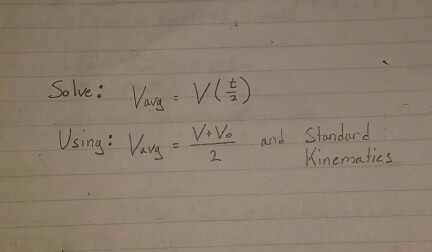 Solve: Vavg = V(t/2)
Using: Vavg = V+V₀/2 and Standard
Kinematics